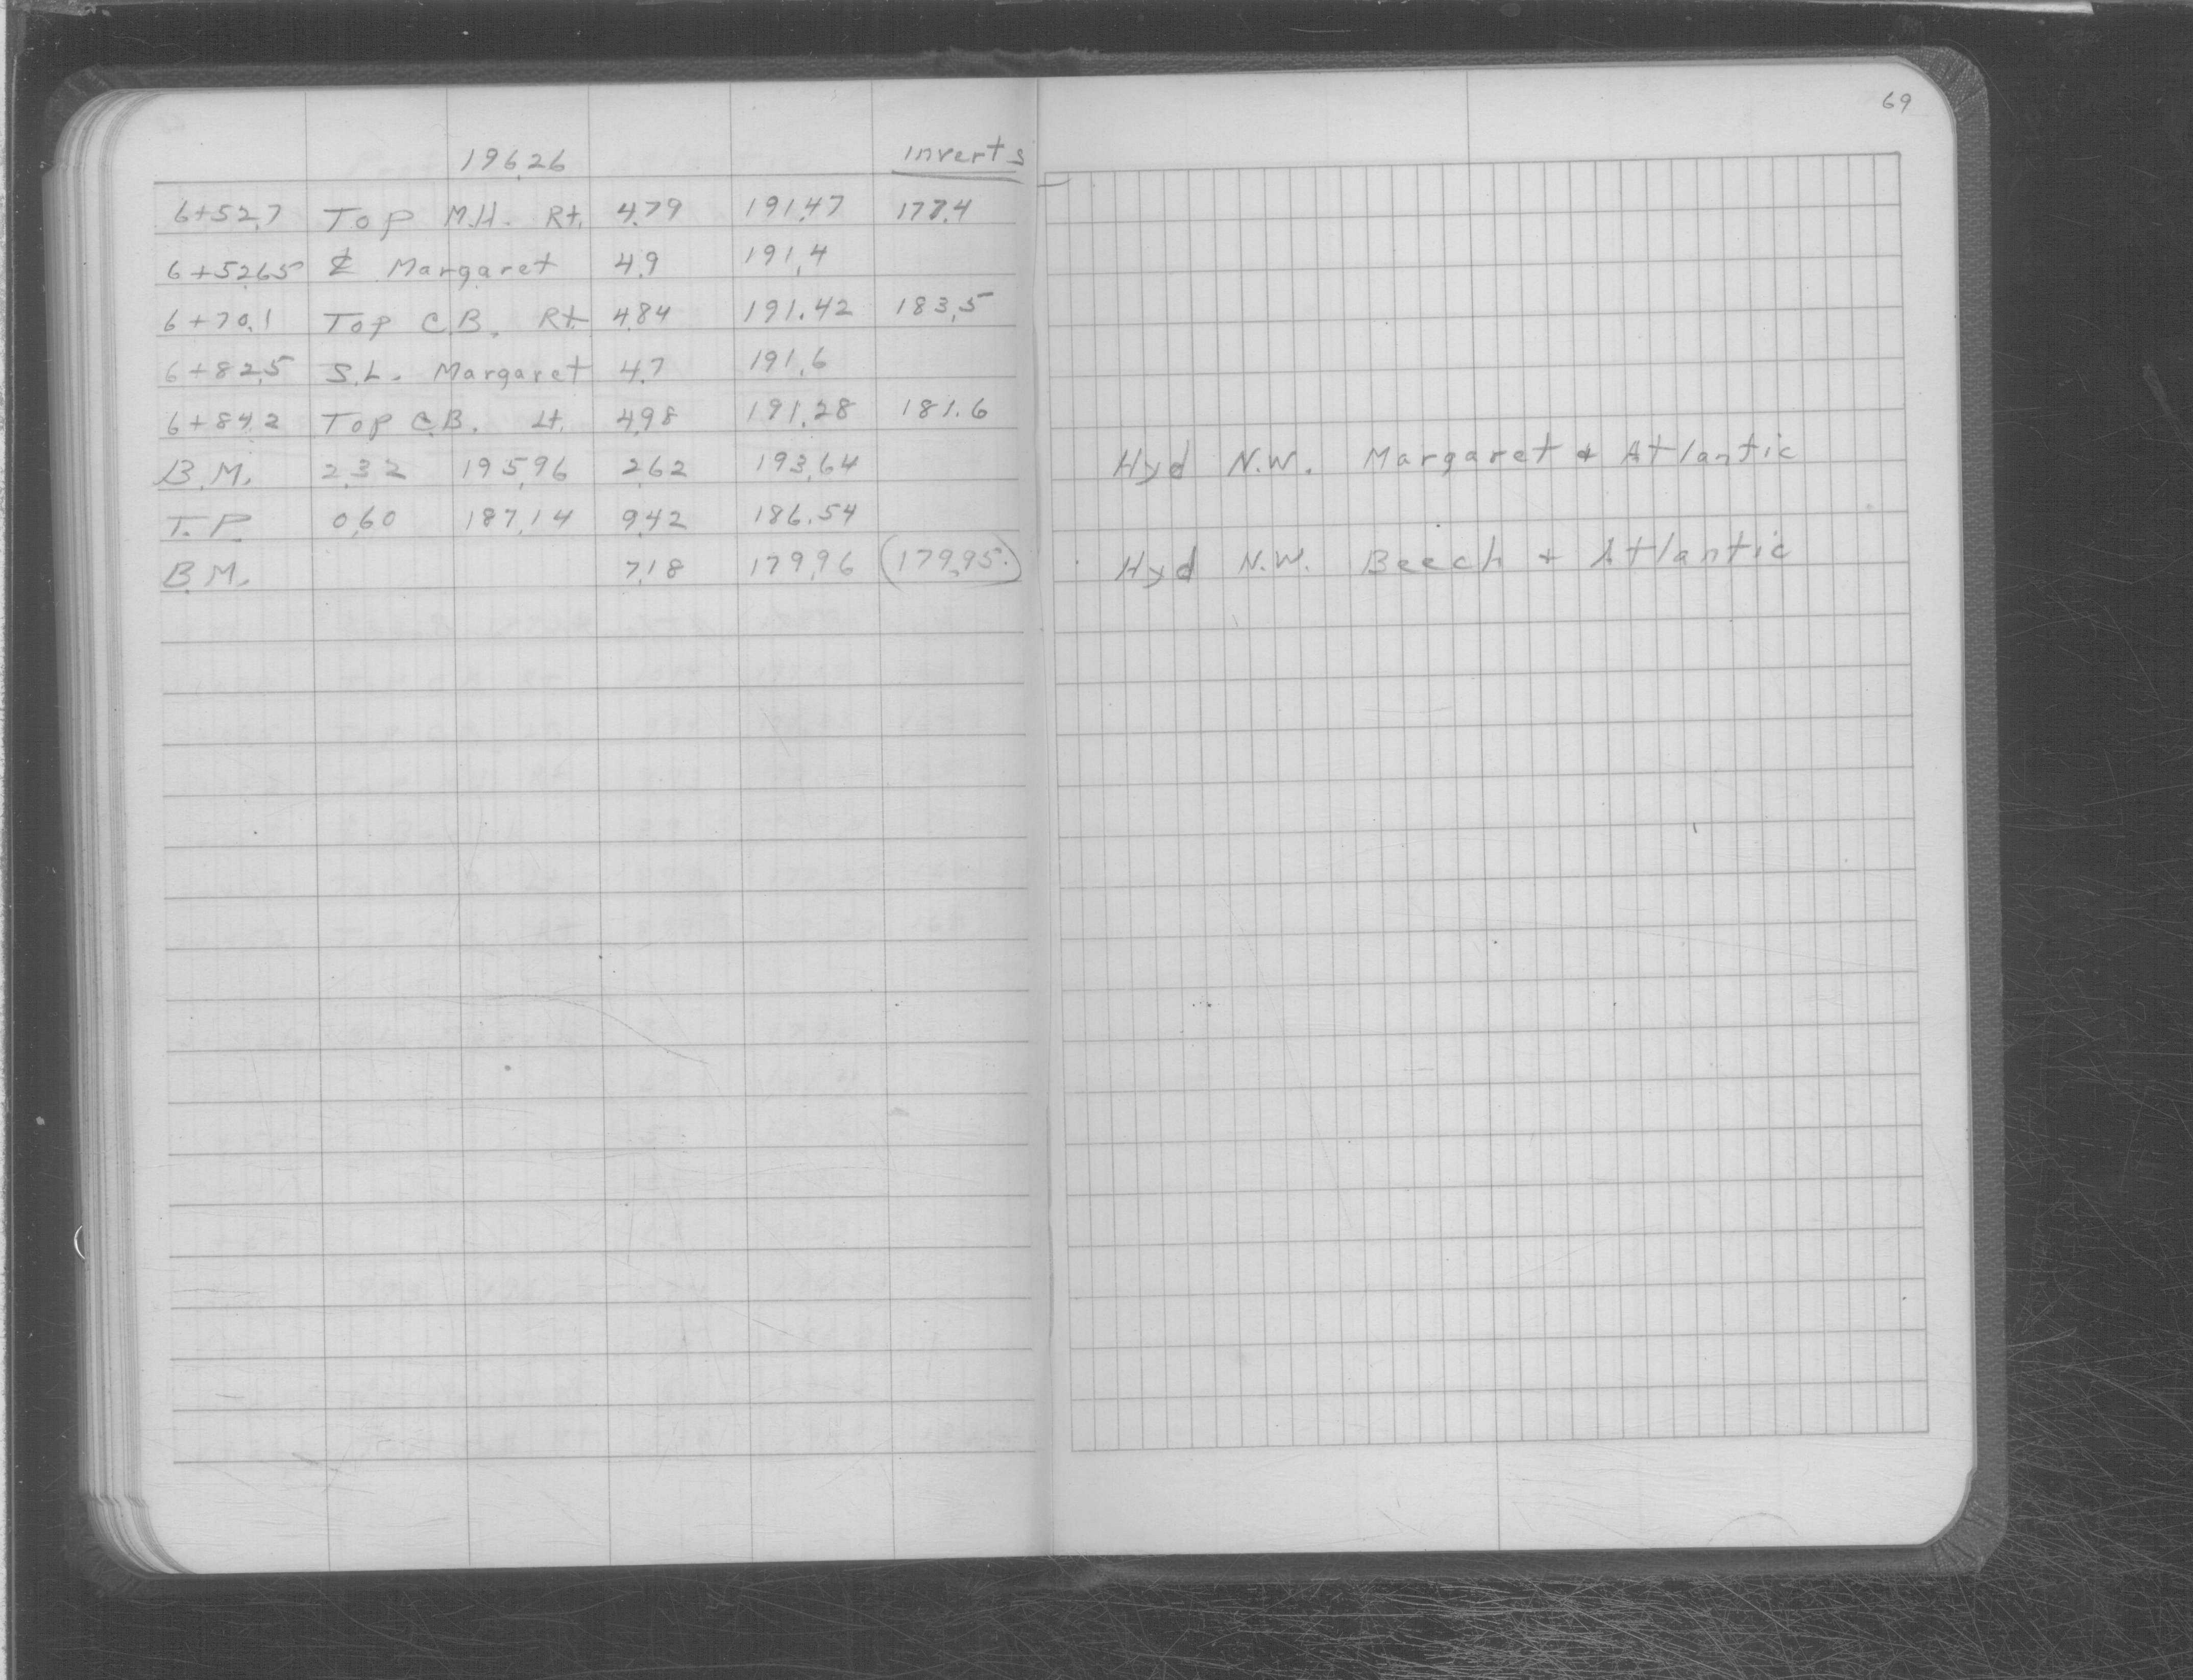 69
196.26 Inverts
6+52.7 Top M.H. Rt. 4.79 191.47 177.4
6+52.65 ℄ Margaret 4.9 191.4
6+70.1 Top C.B. Rt. 4.84 191.42 183.5
6+82.5 S.L. Margaret 4.7 191.6
6+84.2 Top C.B. Lt. 4.98 191.28 181.6
B.M. 2.32 195.96 2.62 193.64 Hyd N.W. Margaret & Atlantic
T.P. 0.60 187.14 9.42 186.54
B.M. 7.18 179.96 (179.95.) Hyd N.W. Beech & Atlantic